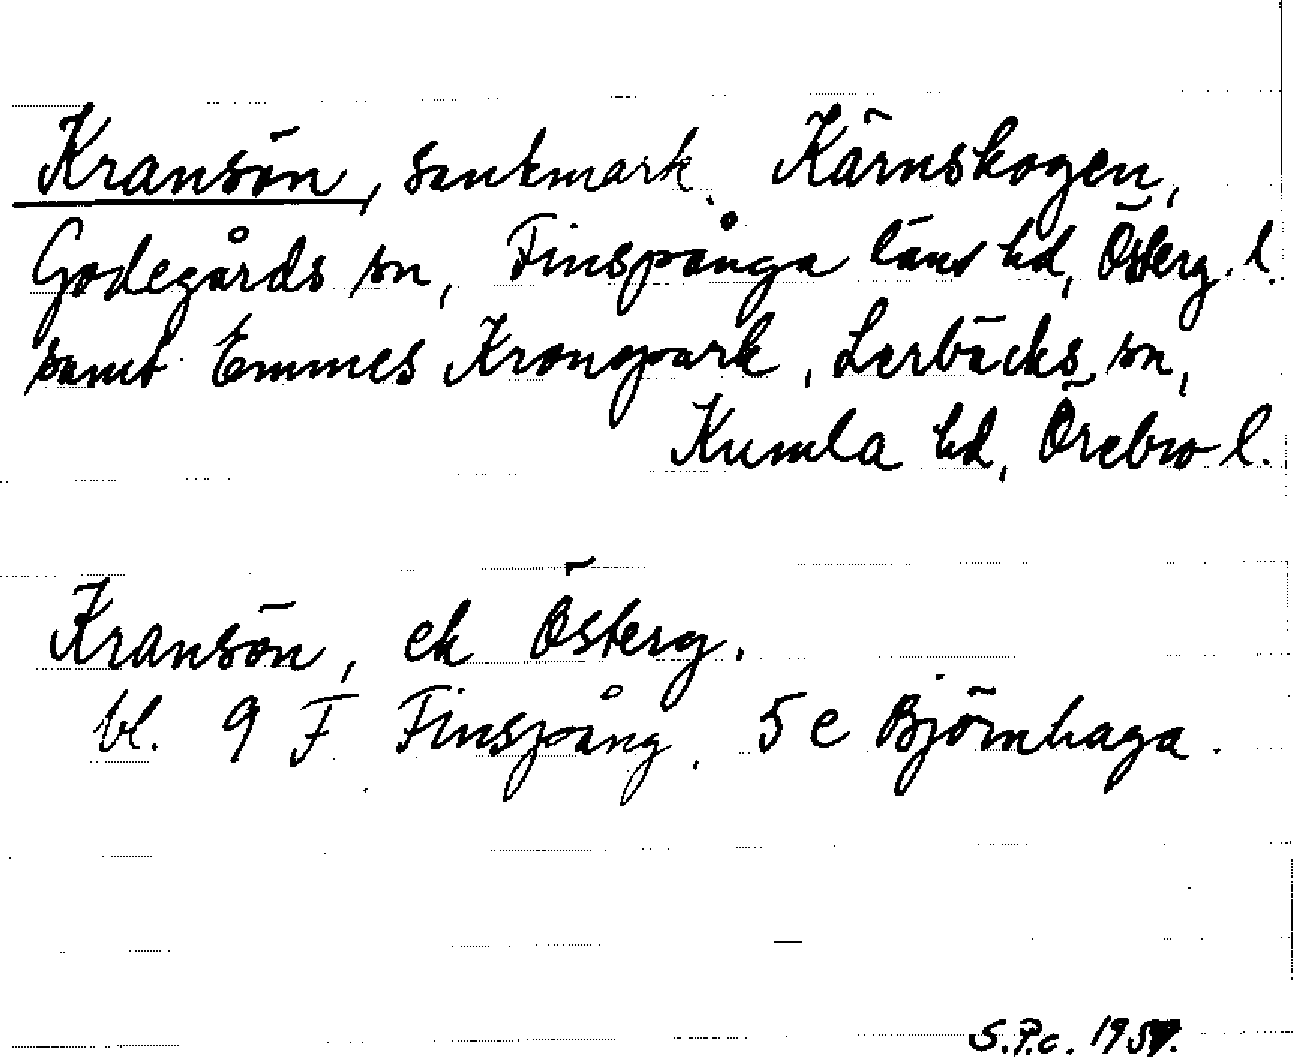 Kransön, sankmark, Kärnskogen,
Godegårds sn, Finspånga läns hd, Österg. l.
samt Emmes Kronopark, Lerbäcks sn,
Kumla hd, Örebro l.
Kransön, ek Österg.
bl. 9 F Finspång, 5 e Björnhaga.
S.P.c.